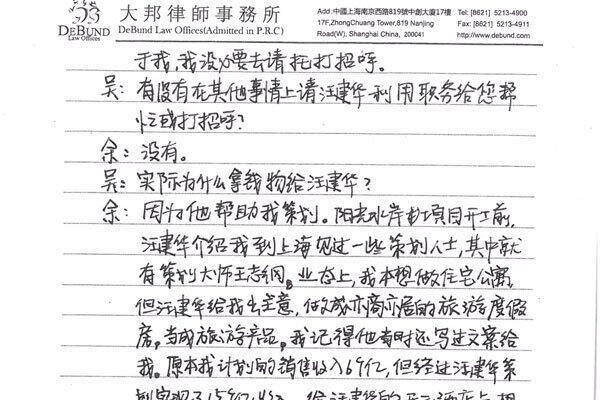 大邦律師事務所
DEBUND
Law Offices
DeBund Law Offices(Admitted in P.R.C)
Add:中國上海南京西路819號中創大廈17樓 Tel: [8621] 5213-4900
17F,ZhongChuang Tower,819 Nanjing Fax: [8621] 5213-4911
Road(W), Shanghai China, 200041 http://www.debund.com
于我,我没必要去请托打招呼。
吴:有没有在其他事情上请汪建华利用职务给您帮
忙或打招呼?
余:没有。
吴:实际为什么拿钱物给汪建华?
余:因为他帮助我策划。阳光水岸项目开工前,
汪建华介绍我到上海见过一些策划人士,其中就
有策划大师王志纲。业态上,我本想做住宅公寓,
但汪建华给我出主意,做成亦商亦居的旅游度假
房,当成旅游产品。我记得他有时还写过文案给
我。原本我计划的销售收入6个亿,但经过汪建华策
划实现了15个亿